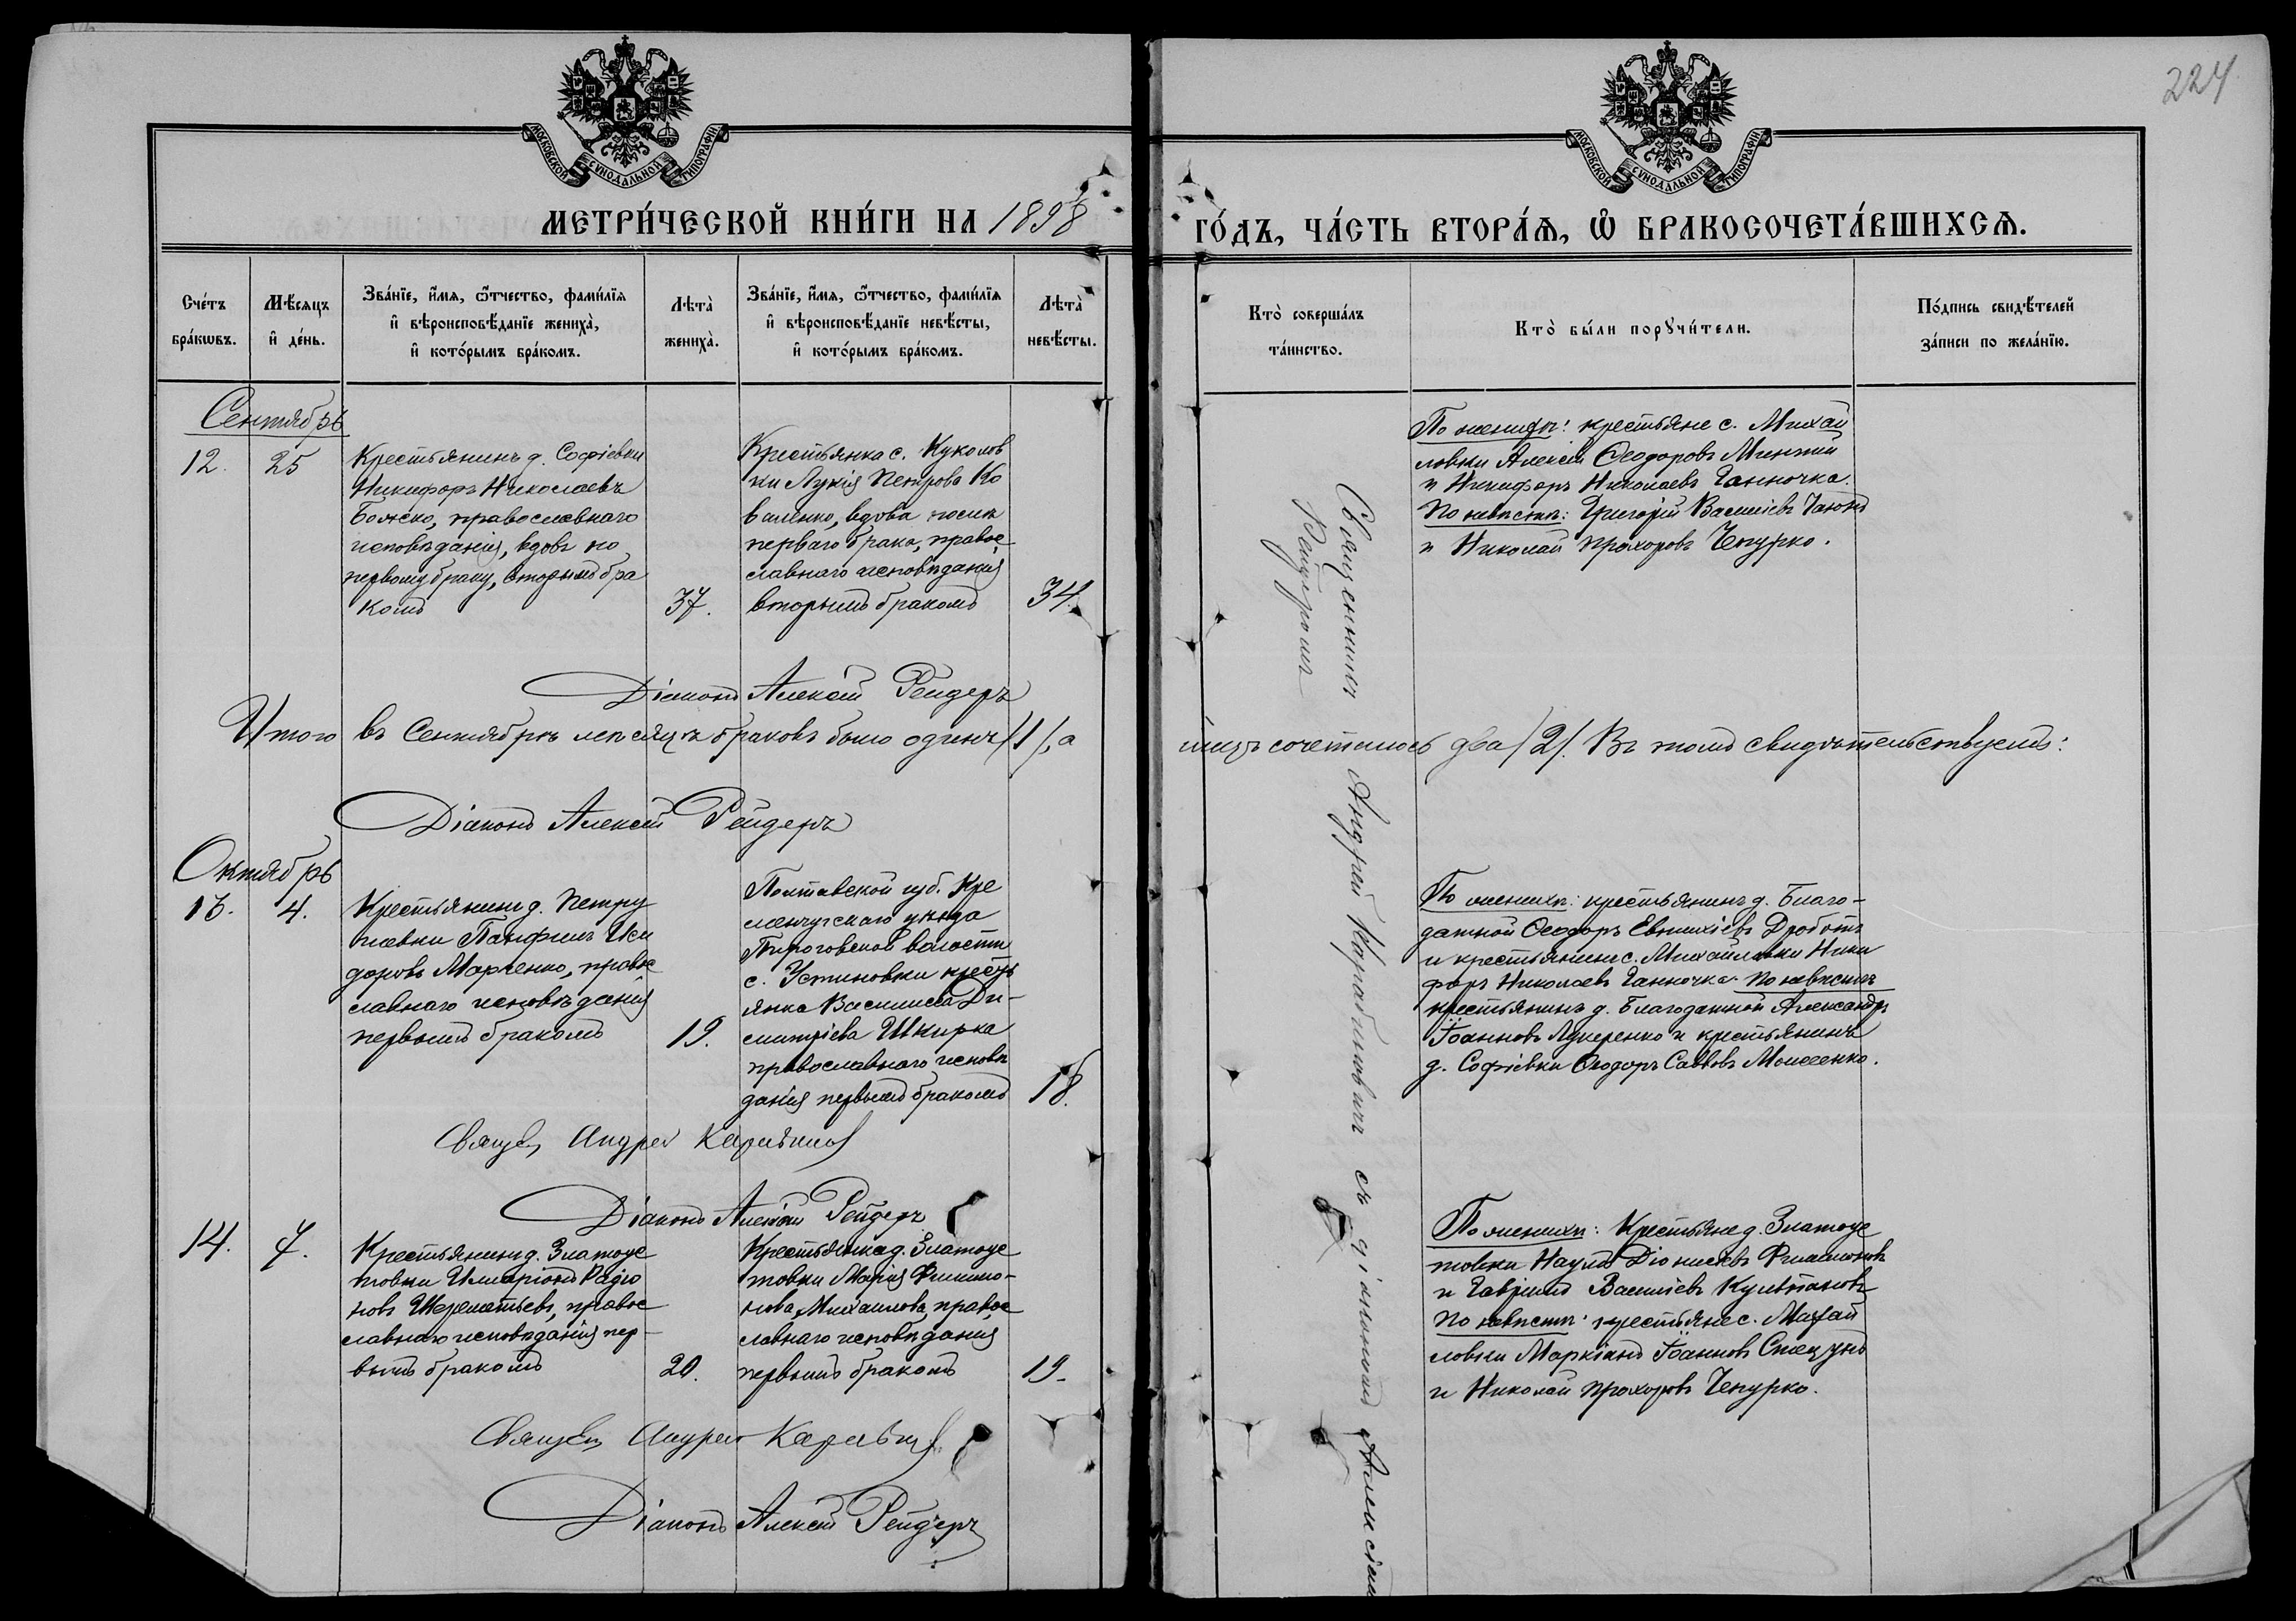 224
МОСКОВСКОЙ СѴНОДАЛЬНОЙ ТИПОГРАФІИ
МОСКОВСКОЙ СѴНОДАЛЬНОЙ ТИПОГРАФІИ
МЕТРИ́ЧЕСКОЙ КНИ́ГИ НА 1898 ГО́ДЪ, ЧА́СТЬ ВТОРА́Я, Ѡ БРАКОСОЧЕТА́ВШИХСЯ.
Сче́тъ бра́кѡвъ.
Мѣ́сяцъ и де́нь.
Зва́нїе, и́мя, ѻ́тчество, фами́лїя
и вѣроисповѣ́данїе жениха̀,
и кото́рымъ бра́комъ.
Лѣта̀ жениха̀.
Зва́нїе, и́мя, ѻ́тчество, фами́лїя
и вѣроисповѣ́данїе невѣ́сты,
и кото́рымъ бра́комъ.
Лѣта̀ невѣ́сты.
Кто̀ соверша́лъ та́инство.
Кто̀ бы́ли порꙋчи́тели.
По́дпись свидѣ́телей за́писи по жела́нїю.
Сентябрь
12. 25
Крестьянинъ д. Софіевки
Никифоръ Николаевъ
Божко, православнаго
исповѣданія, вдовъ по
первому браку, вторымъ бра
комъ
37.
Крестьянка с. Куколов
ки Лукія Петрова Ко
валенко, вдова послѣ
перваго брака, правос
лавнаго исповѣданія
вторымъ бракомъ
34.
По женихѣ: крестьяне с. Михай
ловки Алексій Ѳеодоровъ
и Никифоръ Николаевъ Ганночка.
По невѣстѣ: Григорій Василіевъ
и Николай Прохоровъ Чепурко.
Діаконъ Алексій Рейдеръ
Итого въ Сентябрѣ мѣсяцѣ браковъ было одинъ /1/, а
лицъ сочеталось два /2/. Въ томъ свидѣтельствуетъ:
Діаконъ Алексій Рейдеръ
Октябрь
13. 4.
Крестьянинъ д. Петру
шевки Панфилъ Иси
доровъ Марченко, правос
лавнаго исповѣданія
первымъ бракомъ
19.
Полтавской губ. Кре
менчугскаго уѣзда
Пироговской волости
с. Устиновки кресть
янка Василиса Ди-
митріева Шкирка
православнаго исповѣ
данія первымъ бракомъ
18.
По женихѣ: крестьянинъ д. Благо-
датной Ѳеодоръ Евтихіевъ Дроботъ
и крестьянинъ с. Михайловки Ники
форъ Николаевъ Ганночка. По невѣстѣ
крестьянинъ д. Благодатной Александръ
Іоанновъ Лукеренко и крестьянинъ
д. Софіевки Ѳеодоръ Саввовъ Моисеенко.
Священ Андрей Карабинов
Діаконъ Алексій Рейдеръ
14. 7.
Крестьянинъ д. Златоус
товки Иларіонъ Радіо
новъ Шереметьевъ, правос
лавнаго исповѣданія пер-
вымъ бракомъ
20.
Крестьянка д. Златоус
товки Марія Филимо-
нова Михаилова, правос
лавнаго исповѣданія
первымъ бракомъ
19.
По женихѣ: Крестьяне д. Златоус
товки Наумъ Діонисіевъ Филимоновъ
и Гавріилъ Василіевъ
По невѣстѣ: крестьяне с. Михай
ловки Маркіанъ Іоанновъ
и Николай Прохоровъ Чепурко.
Священ Андрей Карабинов
Діаконъ Алексій Рейдеръ
Священникъ Андрей Карабиновичъ съ діакономъ Алексіемъ
Рейдеромъ